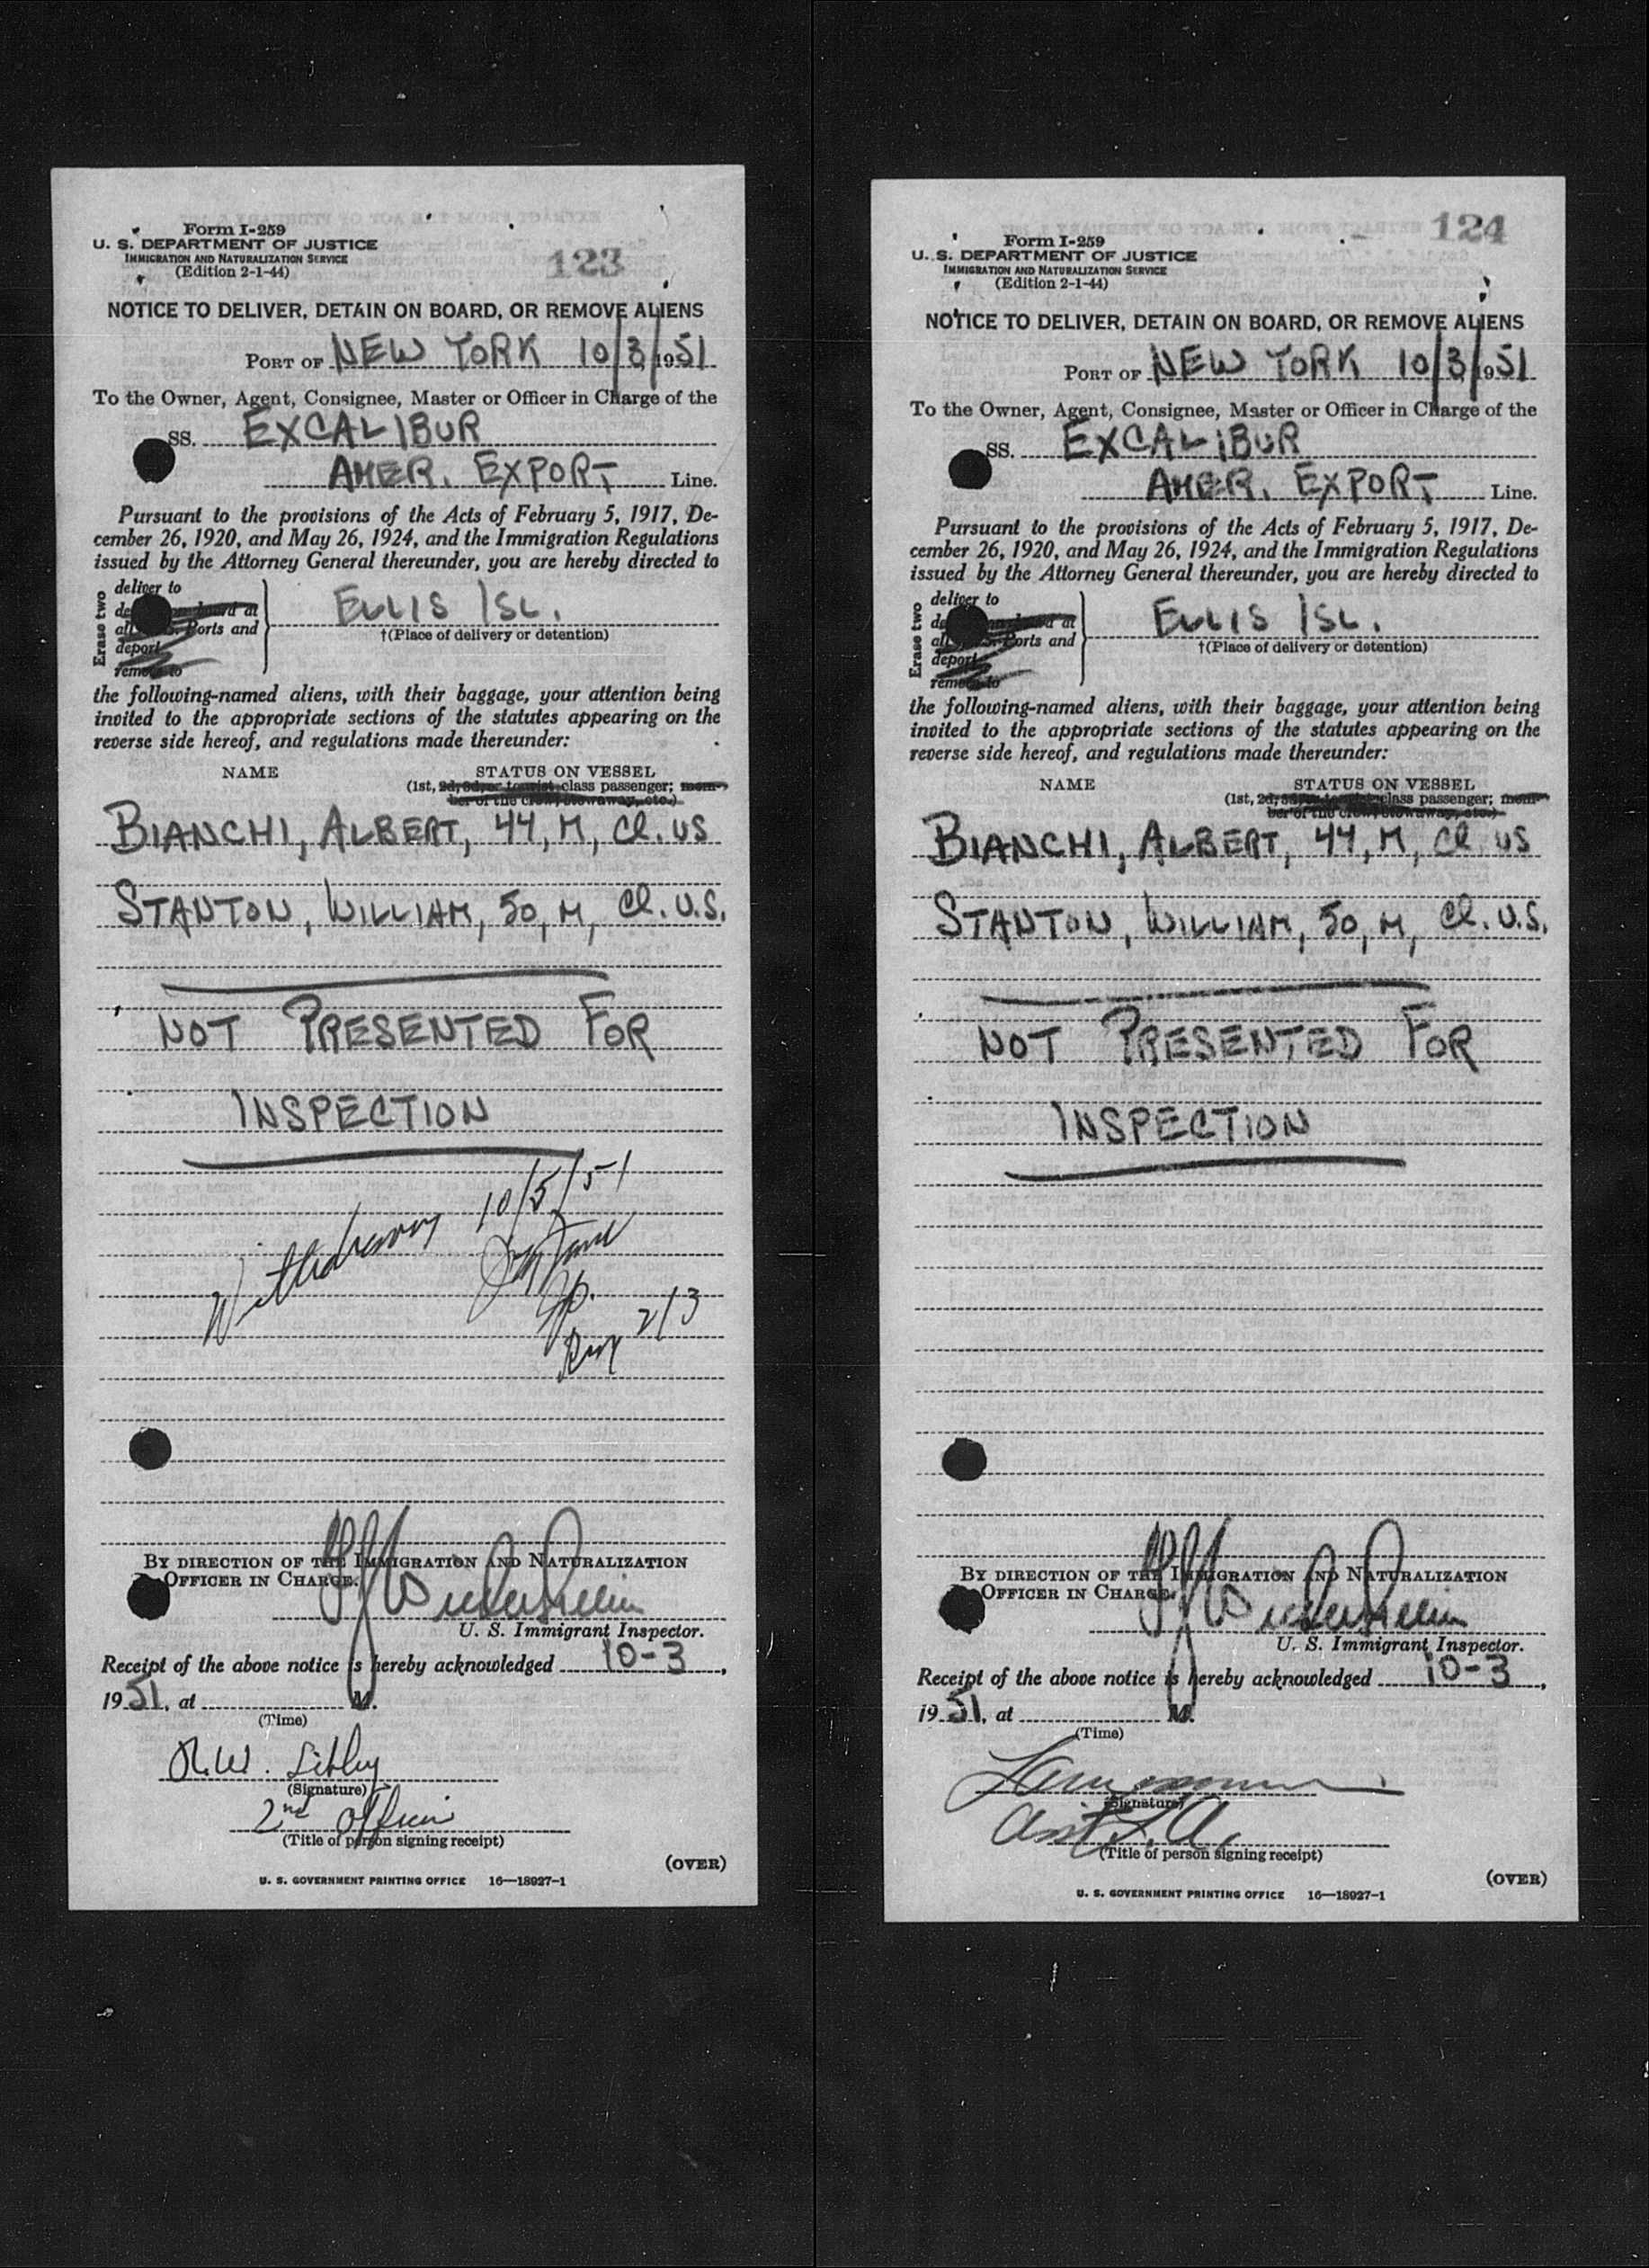 Form I-259
U. S. DEPARTMENT OF JUSTICE
IMMIGRATION AND NATURALIZATION SERVICE
(Edition 2-1-44)
123
NOTICE TO DELIVER, DETAIN ON BOARD, OR REMOVE ALIENS
PORT OF NEW YORK 10/3/1951
To the Owner, Agent, Consignee, Master or Officer in Charge of the
SS. EXCALIBUR
AMER. EXPORT Line.
Pursuant to the provisions of the Acts of February 5, 1917, De-
cember 26, 1920, and May 26, 1924, and the Immigration Regulations
issued by the Attorney General thereunder, you are hereby directed to
Erase two
deliver to
board at
Ports and
deport
remove to
ELLIS ISL.
†(Place of delivery or detention)
the following-named aliens, with their baggage, your attention being
invited to the appropriate sections of the statutes appearing on the
reverse side hereof, and regulations made thereunder:
NAME STATUS ON VESSEL
(1st, 2d, 3d, or tourist class passenger; mem-
ber of the crew, stowaway, etc.)
BIANCHI, ALBERT, 44, M, Cl. US
STANTON, WILLIAM, 50, M, Cl. U.S.
NOT PRESENTED FOR
INSPECTION
Withdrawn 10/5/51
2/3
BY DIRECTION OF THE IMMIGRATION AND NATURALIZATION
OFFICER IN CHARGE.
U. S. Immigrant Inspector.
Receipt of the above notice is hereby acknowledged 10-3,
1951, at M.
(Time)
R.W. Sibley
(Signature)
2nd Officer
(Title of person signing receipt)
(OVER)
U. S. GOVERNMENT PRINTING OFFICE 16—18927-1
Form I-259
U. S. DEPARTMENT OF JUSTICE
IMMIGRATION AND NATURALIZATION SERVICE
(Edition 2-1-44)
124
NOTICE TO DELIVER, DETAIN ON BOARD, OR REMOVE ALIENS
PORT OF NEW YORK 10/3/1951
To the Owner, Agent, Consignee, Master or Officer in Charge of the
SS. EXCALIBUR
AMER. EXPORT Line.
Pursuant to the provisions of the Acts of February 5, 1917, De-
cember 26, 1920, and May 26, 1924, and the Immigration Regulations
issued by the Attorney General thereunder, you are hereby directed to
Erase two
deliver to
at
Ports and
deport
remove to
ELLIS ISL.
†(Place of delivery or detention)
the following-named aliens, with their baggage, your attention being
invited to the appropriate sections of the statutes appearing on the
reverse side hereof, and regulations made thereunder:
NAME STATUS ON VESSEL
(1st, 2d, 3d, or tourist class passenger; mem-
ber of the crew, stowaway, etc.)
BIANCHI, ALBERT, 44, M, Cl. US
STANTON, WILLIAM, 50, M, Cl. U.S.
NOT PRESENTED FOR
INSPECTION
BY DIRECTION OF THE IMMIGRATION AND NATURALIZATION
OFFICER IN CHARGE.
U. S. Immigrant Inspector.
Receipt of the above notice is hereby acknowledged 10-3,
1951, at M.
(Time)
(Signature)
(Title of person signing receipt)
(OVER)
U. S. GOVERNMENT PRINTING OFFICE 16—18927-1